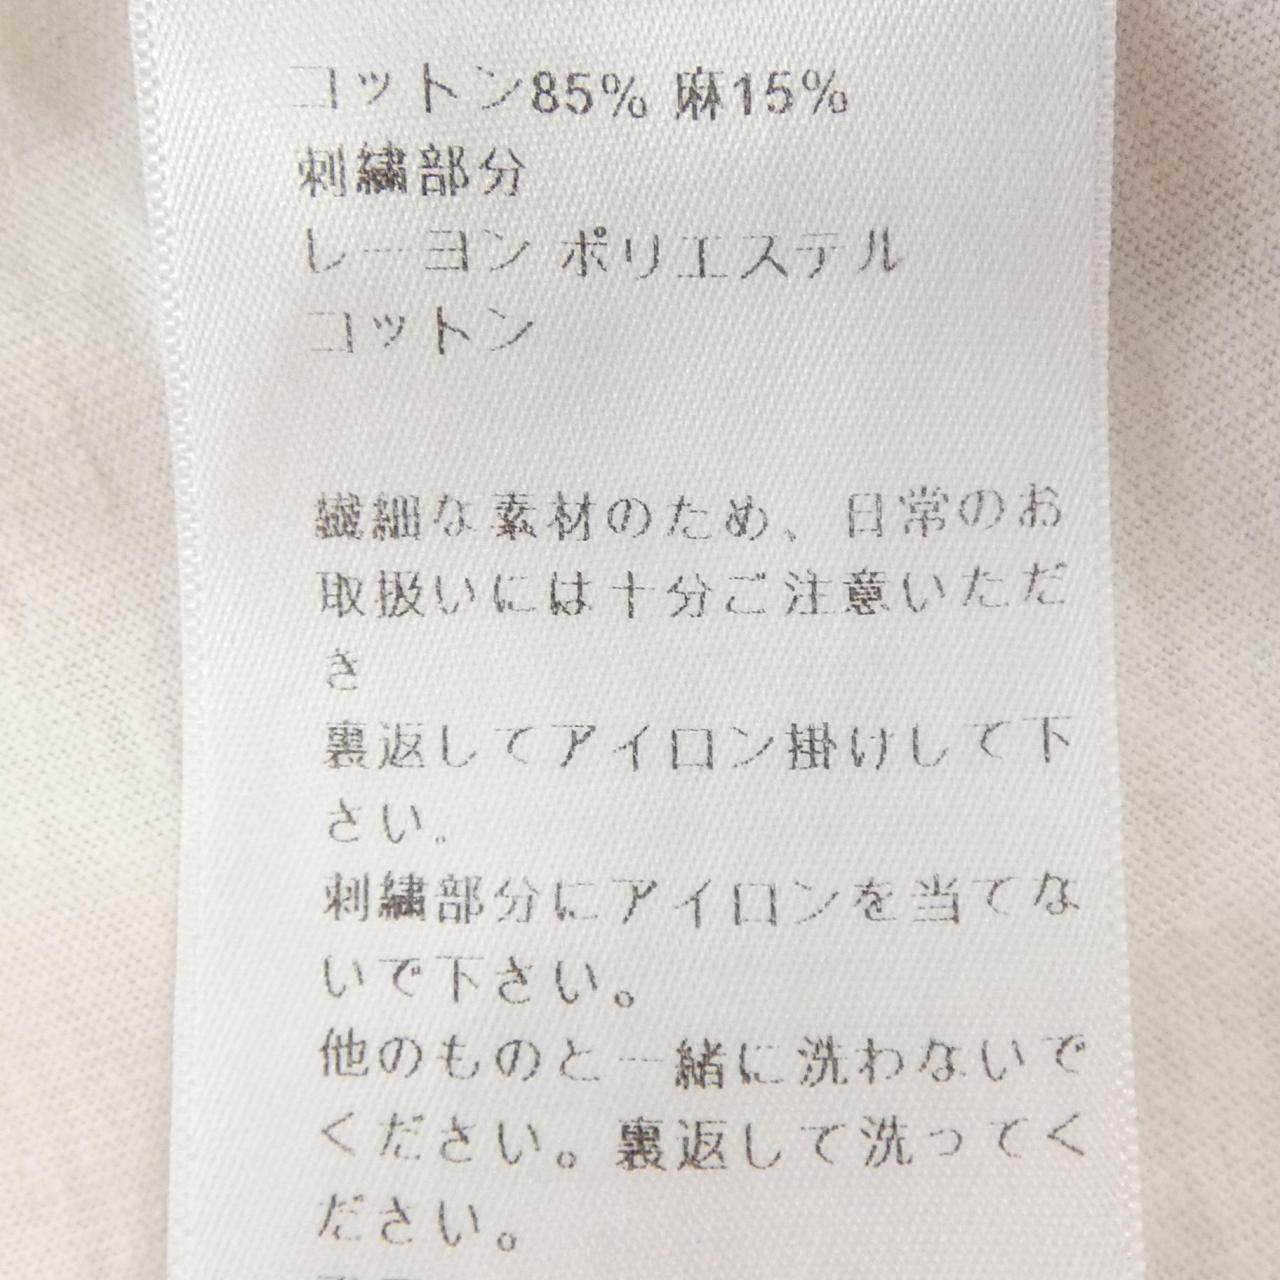 コットン85% 麻15%
刺繍部分
レーヨン ポリエステル
コットン
繊細な素材のため、日常のお
取扱いには十分ご注意いただ
き
裏返してアイロン掛けして下
さい。
刺繍部分にアイロンを当てな
いで下さい。
他のものと一緒に洗わないで
ください。裏返して洗ってく
ださい。